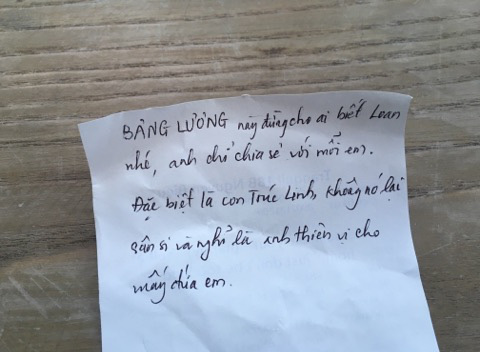 BẢNG LƯƠNG này đừng cho ai biết Loan
nhé, anh chỉ chia sẻ với mỗi em.
Đặc biệt là con Trúc Linh, không nó lại
sân si và nghỉ là anh thiên vị cho
mấy chúa em.